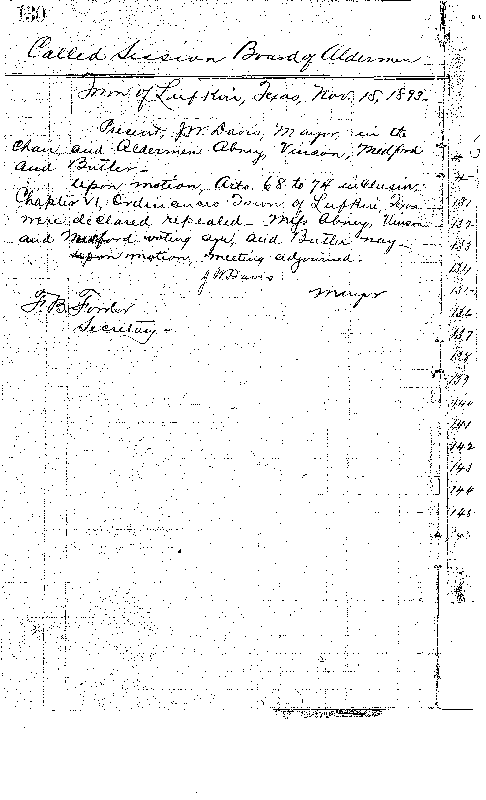 130
Called Session Board of Aldermen
Town of Lufkin, Texas, Nov. 15, 1893.
Present, J.W. Davis, Mayor, in the
Chair, and Aldermen Abney, Vinson, Medford
and Butler.
Upon motion, Arts. 68 to 74 inclusive,
Chapter VI, Ordinances Town of Lufkin Texas
were declared repealed. Messrs Abney, Vinson
and Medford voting aye, and Butler nay.
Upon motion, meeting adjourned.
J W Davis
Mayor
F. B. Fowler
Secretary
131
132
133
134
135
136
137
138
139
140
141
142
143
144
145